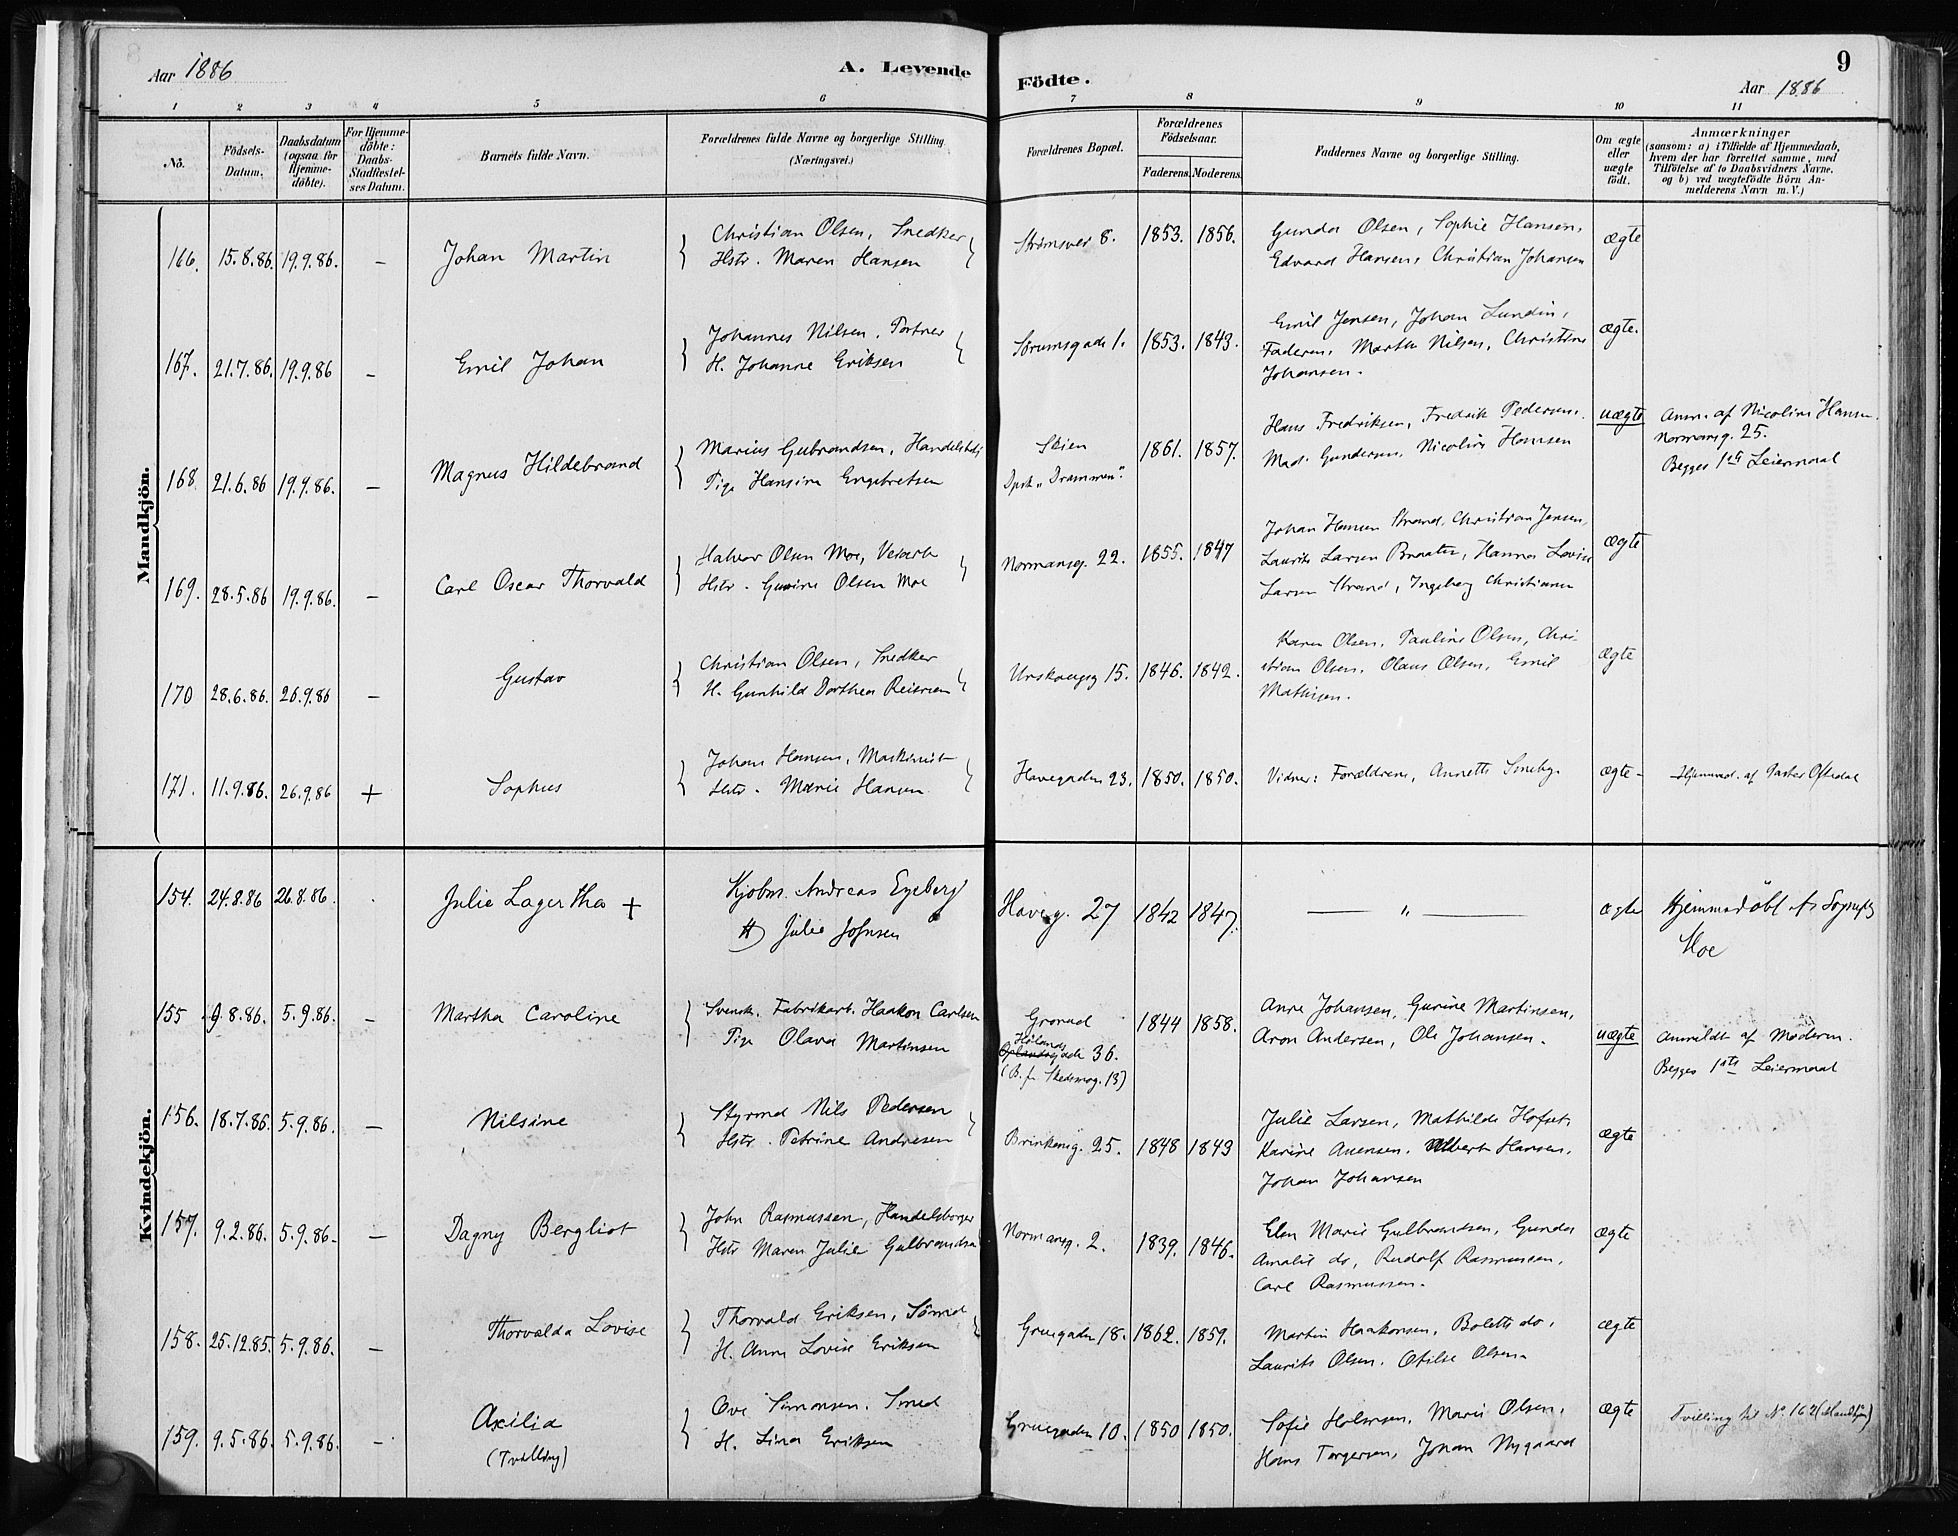 Aar 1886
A. Levende Födte.
9
Aar 1886
1 2 3 4 5 6 7 8 9 10 11
No.
Födsels-
Datum.
Daabsdatum
(ogsaa for
Hjemme-
döbte).
For Hjemme-
döbte:
Daabs-
Stadfæstel-
ses Datum.
Barnets fulde Navn.
Forældrenes fulde Navne og borgerlige Stilling
(Næringsvei.)
Forældrenes Bopæl.
Forældrenes
Födselsaar.
Faderens. Moderens.
Faddernes Navne og borgerlige Stilling.
Om ægte
eller
uægte
födt.
Anmærkninger
(saasom: a) i Tilfælde af Hjemmedaab,
hvem der har forrettet samme, med
Tilföielse af to Daabsvidners Navne,
og b) ved uægtefödte Börn An-
melderens Navn m. V.)
Mandkjön.
166. 15.8.86. 19.9.86. –
Johan Martin
Christian Olsen, Snedker
Hstr. Maren Hansen
Strømsvei 8. 1853. 1856.
Gunda Olsen, Sophie Hansen,
Edvard Hansen, Christian Johansen
ægte
167. 21.7.86. 19.9.86 –
Emil Johan
Johannes Nilsen, Portner
H. Johanne Eriksen
Sørumsgade 1. 1853. 1843.
Emil Jensen, Johan Lundin,
Faderen, Marthe Nilsen, Christine
Johansen.
ægte.
168. 21.6.86 19.9.86. –
Magnus Hildebrand
Marius Gubrandsen, Handelsbetj
Pige Hansine Engebretsen
Skien
Dpsk. „Drammen".
1861. 1857.
Hans Fredriksen, Fredrik Pedersen,
Mad. Gundersen, Nicoline Hansen
uægte
Anm. af Nicoline Hansen.
Normansg. 25.
Begges 1ste Leiermaal
169. 28.5.86 19.9.86. –
Carl Oscar Thorvald
Halvor Olsen Moe,
Hstr. Gurine Olsen Moe
Normansg. 22. 1855. 1847
Johan Hansen Strand, Christian Jensen,
Laurits Larsen Braaten, Hanna Lovise
Larsen Strand, Ingeborg Christiansen
ægte
170 28.6.86. 26.9.86 –
Gustav
Christian Olsen, Snedker
H. Gunhild Dorthea Reiersen
Urskougsg 15. 1846. 1842.
Karen Olsen, Pauline Olsen, Chri-
stian Olsen, Olaus Olsen, Emil
Mathisen.
ægte
171. 11.9.86. 26.9.86 +
Sophus
Johan Hansen, Maskinist
Hstr. Marie Hansen
Havegaden 23. 1850. 1850.
Vidner: Forældrene, Annette Smeby.
ægte –
Hjemmed. af Pastor Oftedal
Kvindekjön.
154. 24.8.86 26.8.86.
Julie Lagertha +
Kjøbm. Andreas Egeberg
H) Julie Johnsen
Haveg. 27 1842 1847.
— „ —
ægte
Hjemmedöbt af Sognepr
Hoe
155 9.8.86. 5.9.86. –
Martha Caroline
Svensk. Fabrikarb. Haakon Carlsen
Pige Olava Martinsen
Grorud
Hølands
gade 36.
(B. fr. Skedsmog. 13)
1844 1858.
Anne Johansen, Gurine Martinsen,
Aron Andersen, Ole Johansen.
uægte
Anmeldt af Moderen.
Begges 1ste Leiermaal
156. 18.7.86. 5.9.86. –
Nilsine
Styrmd Nils Pedersen
Hstr. Petrine Andresen
Brinkensg. 25. 1848 1849
Julie Larsen, Mathilde Hofset,
Karine Auensen, Albert Hansen,
Johan Johansen
ægte
157. 9.2.86. 5.9.86 –
Dagny Bergliot
John Rasmussen, Handelsborger
Hstr Maren Julie Gulbrandsen
Normansg. 2. 1839. 1846.
Elen Marie Gulbrandsen, Gunda
Amalie do, Rudolf Rasmussen,
Carl Rasmussen.
ægte
158. 25.12.85. 5.9.86. –
Thorvalda Lovise
Thorvald Eriksen, Sömd
H. Anna Lovise Eriksen
Gruegaden 18. 1862. 1859.
Martin Haakonsen, Bolette do,
Laurits Olsen, Otilie Olsen
ægte
159. 9.5.86. 5.9.86. –
Axilia
(Tvilling)
Ove Simonsen, Smed
H. Lina Eriksen
Gruegaden 10. 1850 1850.
Sofie Halvorsen, Marie Olsen,
Hans Torgersen, Johan Nygaard
ægte
Tvilling til No 162 (Mandkjön)